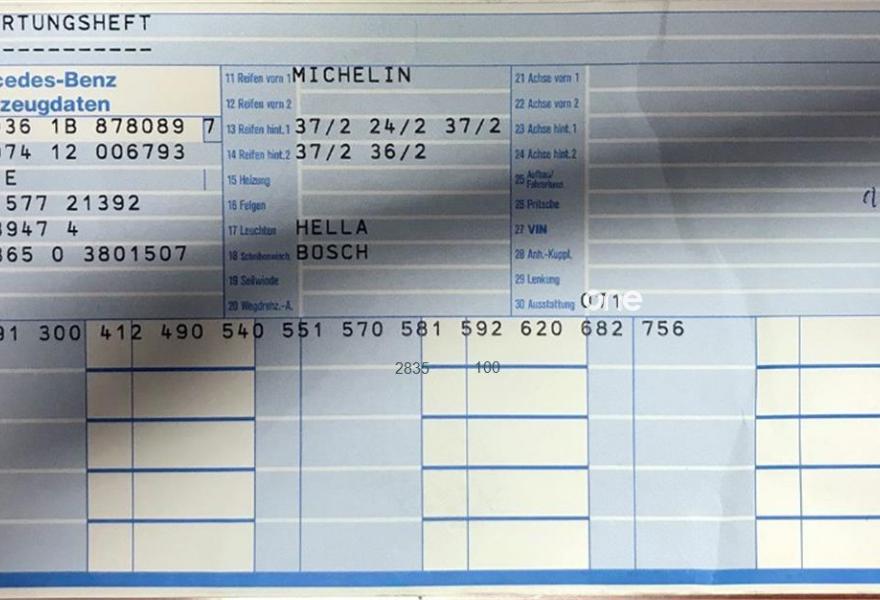 RTUNGSHEFT
----------
cedes-Benz
zeugdaten
36 1B 878089 7
74 12 006793
E
577 21392
947 4
365 0 3801507
11 Reifen vorn 1 MICHELIN
12 Reifen vorn 2
13 Reifen hint.1 37/2 24/2 37/2
14 Reifen hint.2 37/2 36/2
15 Heizung
16 Felgen
17 Leuchten HELLA
18 Scheibenwisch. BOSCH
19 Seilwinde
20 Wegdrehz.-A.
21 Achse vorn 1
22 Achse vorn 2
23 Achse hint.1
24 Achse hint.2
25 Aufbau/
Fahrerhaus
26 Pritsche
27 VIN
28 Anh.-Kuppl.
29 Lenkung
30 Ausstattung 071
one
91 300 412 490 540 551 570 581 592 620 682 756
2835 100